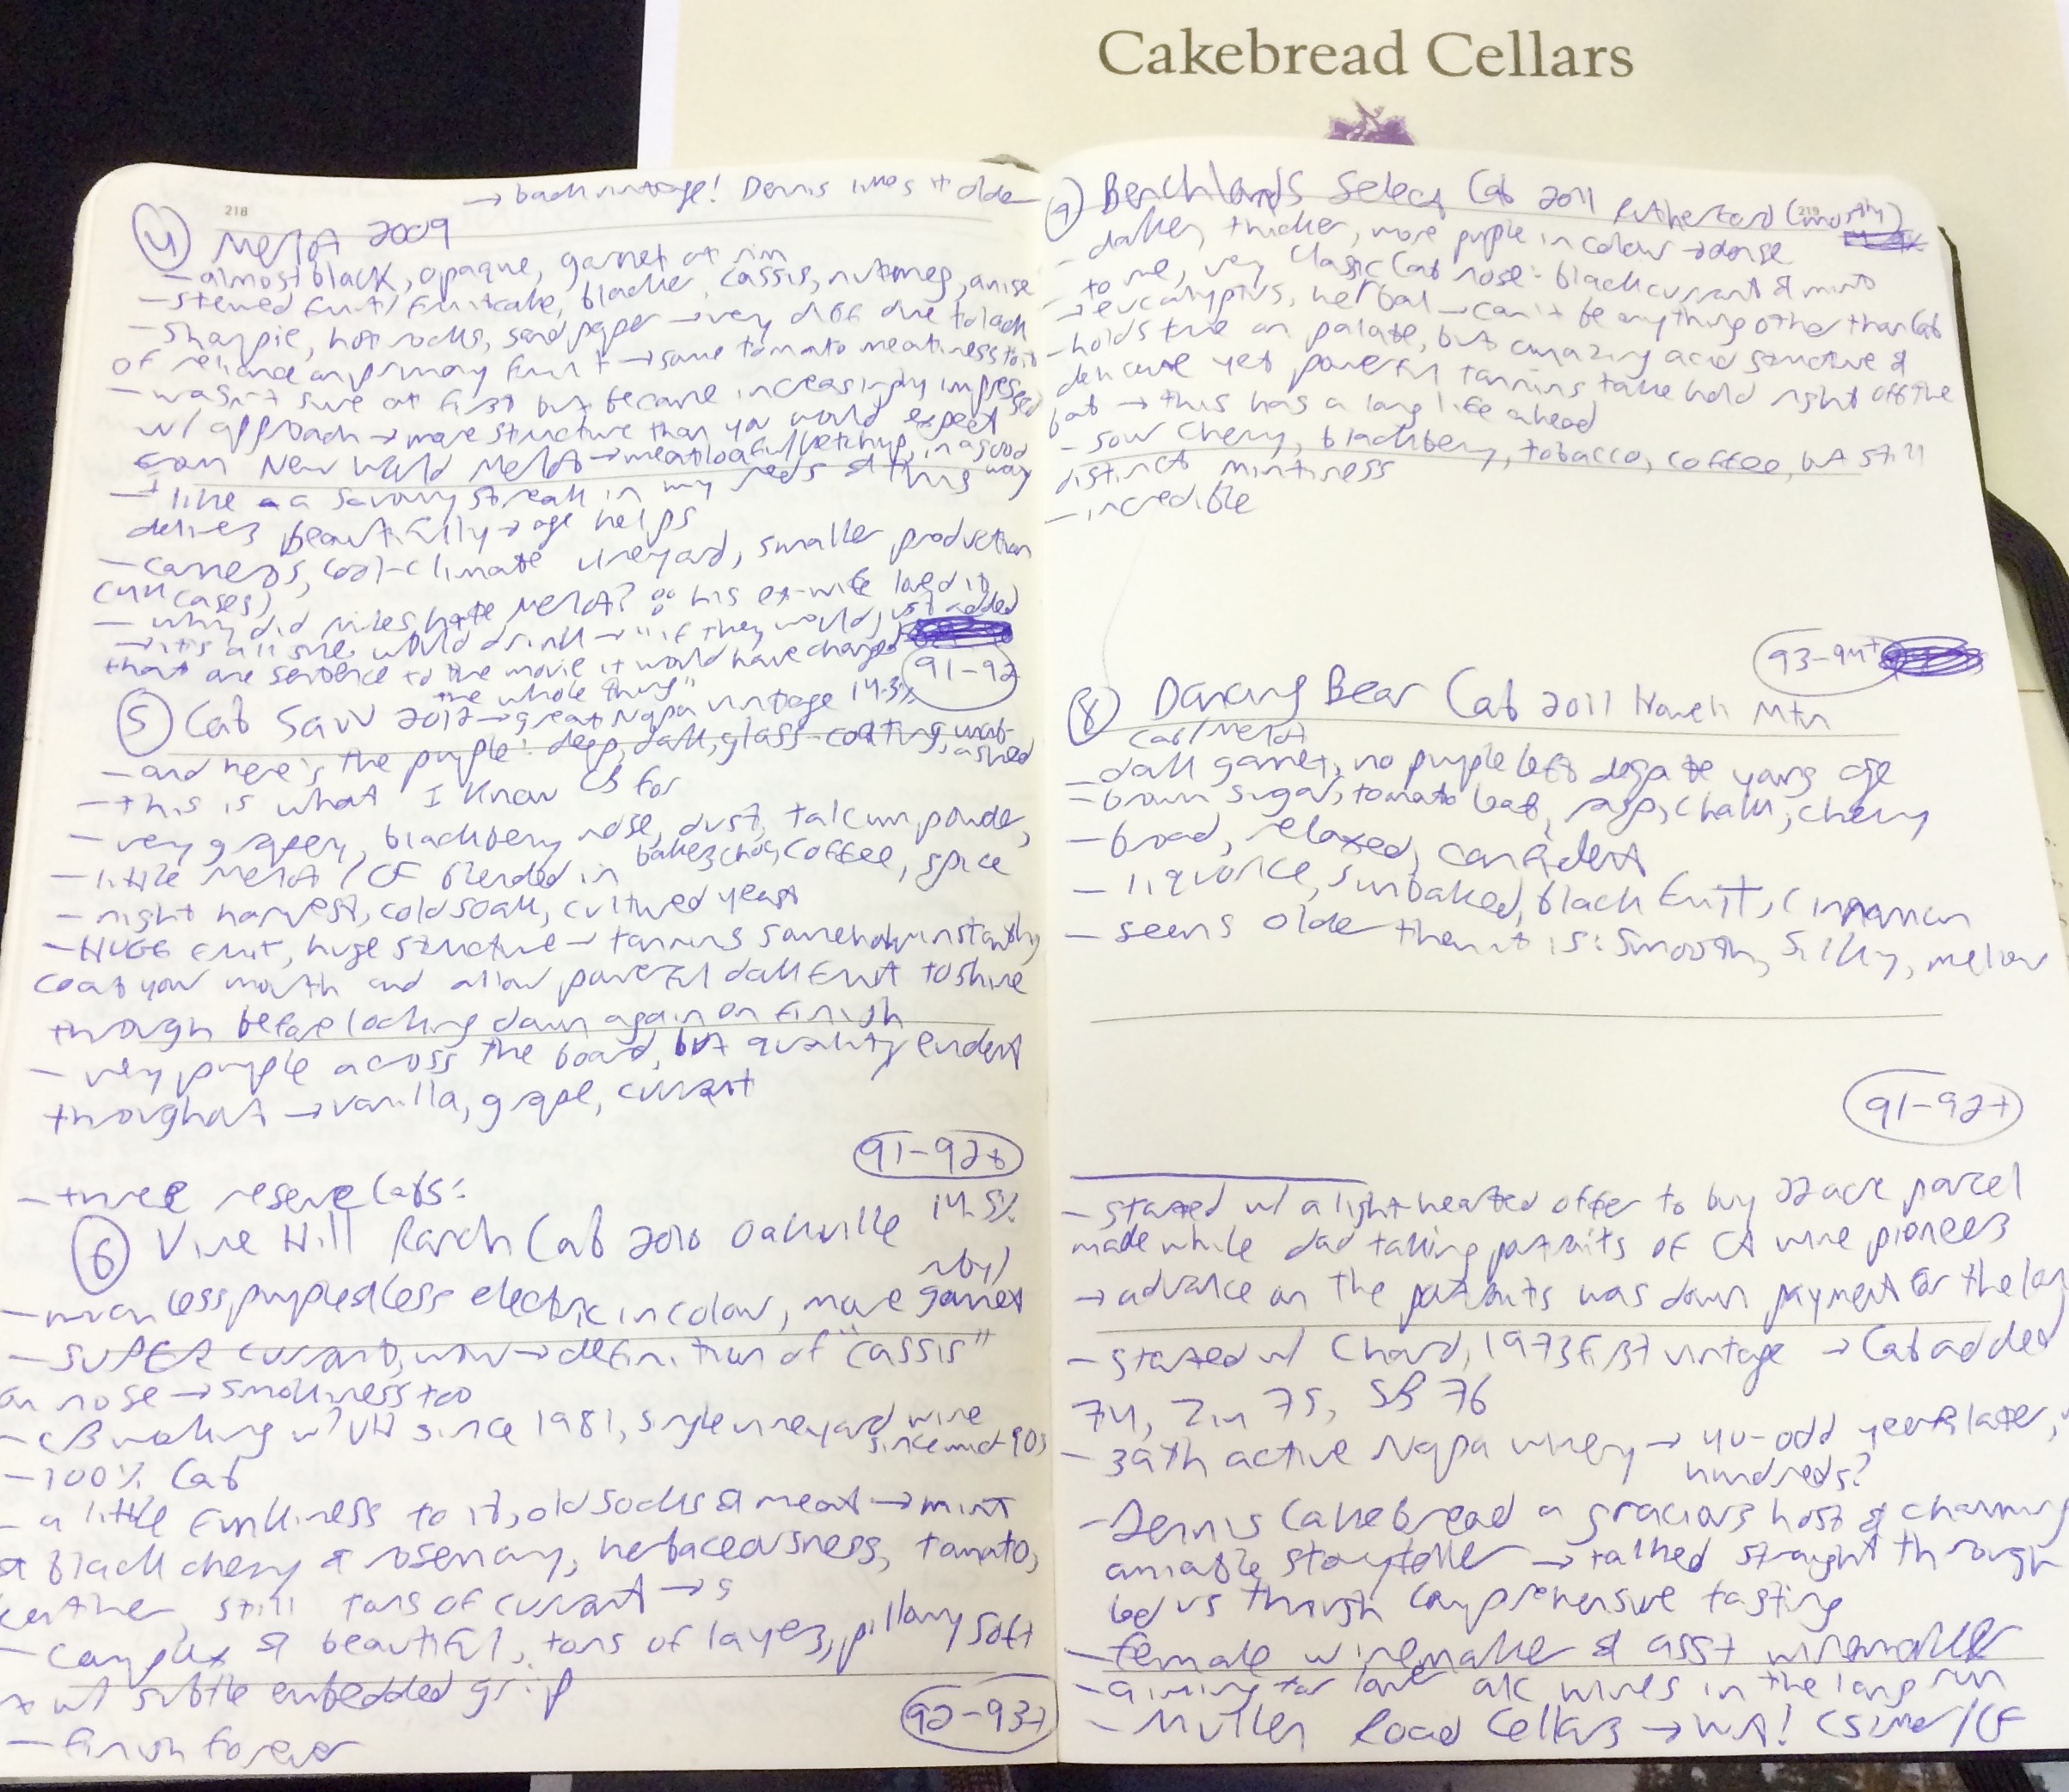 Cakebread Cellars
218
→ back vintage! Dennis likes it older
④ Merlot 2009
- almost black, opaque, garnet at rim
- stewed fruit/fruitcake, bladder, cassis, nutmeg, anise
- sharpie, hot rocks, sandpaper → very diff due to lack
of reliance on primary fruit → some tomato meatiness to it
- wasn't sure at first but became increasingly impressed
w/ approach → more structure than you would expect
from New World Merlot → meatloaf w/ ketchup, in a good way
- I like a savoury streak in my reds & this
delivers beautifully → age helps
- Carneros, cool-climate vineyard, smaller production
cases)
- why did Miles hate Merlot? ∵ his ex-wife loved it,
→ it's all she would drink → "if they would just added
that one sentence to the movie it would have changed
the whole thing"
91-92
⑤ Cab Sauv 2012 → great Napa vintage 14.3%
- and here's the purple: deep, dark, glass-coating, unab-
ashed
- this is what I know CB for
- very grapey, blackberry nose, dust, talcum powder,
baker's choc, coffee, spice
- little Merlot/CF blended in
- night harvest, cold soak, cultured yeast
- HUGE fruit, huge structure → tannins somehow instantly
coat your mouth and allow powerful dark fruit to shine
through before locking down again on finish
- very purple across the board, but quality evident
throughout → vanilla, grape, currant
91-92+
- three reserve Cabs:
⑥ Vine Hill Ranch Cab 2010 Oakville 14.5%
- much less purple & less electric in colour, more ruby/
garnet
- SUPER currant, wow → definition of "cassis"
on nose → smokiness too
- CB working w/ VH since 1981, single vineyard wine
since mid-90s
- 100% Cab
- a little funkiness to it, old socks & meat → mint
& black cherry & rosemary, herbaceousness, tomato,
leather, still tons of currant → s
- complex & beautiful, tons of layers, pillowy soft
w/ subtle embedded grip
- finish forever
92-93+
Benchlands Select Cab 2011 Rutherford (mostly)
219
- darker, thicker, more purple in colour → dense
- to me, very classic Cab nose: blackcurrant & mint
→ eucalyptus, herbal → can't be anything other than Cab
- holds true on palate, but amazing acid structure &
delicate yet powerful tannins take hold right off the
bat → this has a long life ahead
- sour cherry, blackberry, tobacco, coffee, but still
distinct mintiness
- incredible
93-94+
⑧ Dancing Bear Cab 2011 Howell Mtn
Cab/Merlot
- dark garnet, no purple left despite young age
- brown sugar, tomato leaf, rasp, chalk, cherry
- broad, relaxed, confident
- liquorice, sunbaked, black fruit, cinnamon
- seems older than it is: smooth, silky, mellow
91-92+
- started w/ a light-hearted offer to buy 22 acre parcel
made while dad taking portraits of CA wine pioneers
→ advance on the portraits was down payment for the land
- started w/ Chard, 1973 first vintage → Cab added
74, Zin 75, SB 76
- 39th active Napa winery → 40-odd years later,
hundreds?
- Dennis Cakebread a gracious host & charming
amiable storyteller → talked straight through
led us through comprehensive tasting
- female winemaker & asst winemaker
- aiming for lower alc wines in the long run
- Mullen Road Cellars → WA! CS/Mer/CF